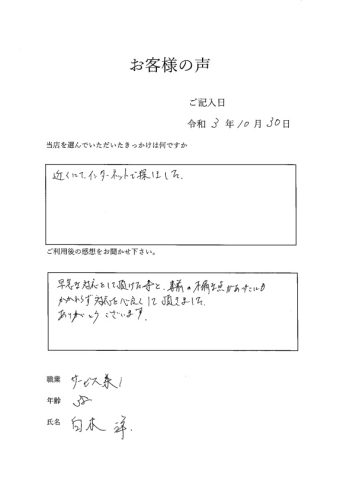 お客様の声
ご記入日
令和 3 年 10 月 30 日
当店を選んでいただいたきっかけは何ですか
近くにて、インターネットで探しました。
ご利用後の感想をお聞かせ下さい。
早急な対応をして頂けた事と、事前の不備な点があったにも
かかわらず対応を心良くして頂きました。
ありがとうございます。
職業 サービス業
年齢 38
氏名 白木